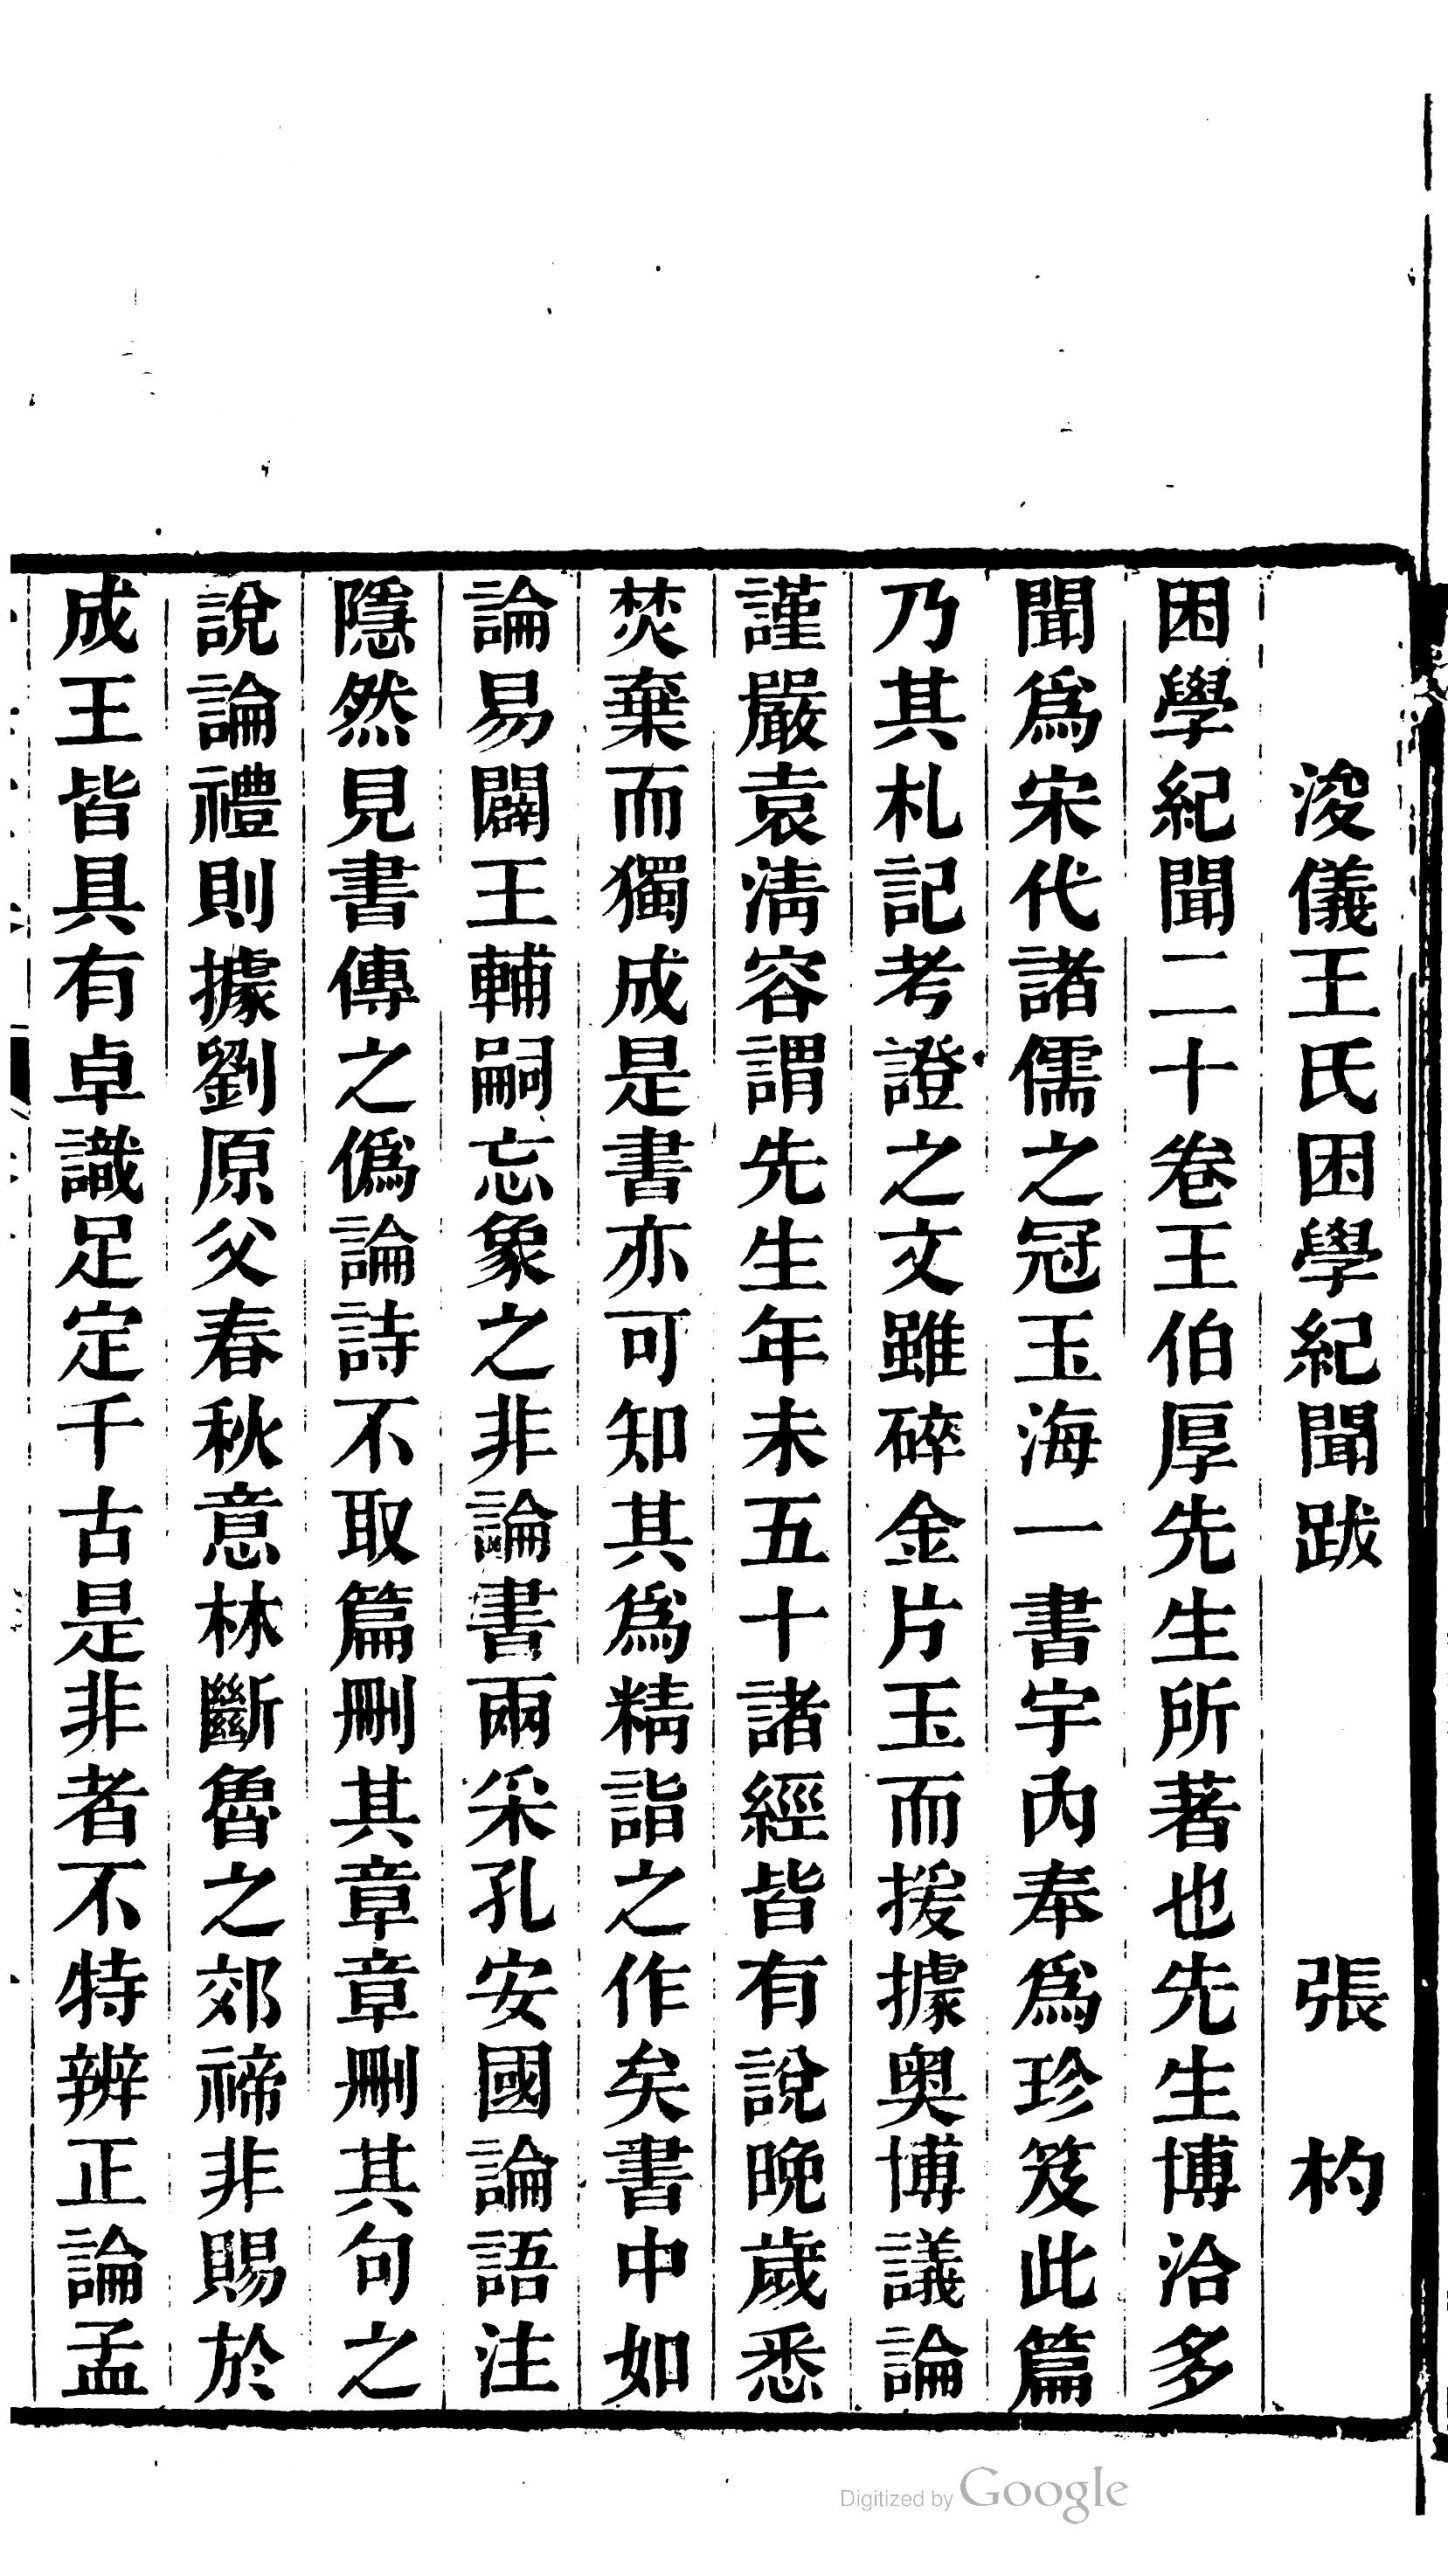 浚儀王氏困學紀聞跋　張杓
困學紀聞二十卷王伯厚先生所著也先生博洽多
聞爲宋代諸儒之冠玉海一書宇內奉爲珍笈此篇
乃其札記考證之文雖碎金片玉而援據奧博議論
謹嚴袁淸容謂先生年未五十諸經皆有說晚歲悉
焚棄而獨成是書亦可知其爲精詣之作矣書中如
論易闢王輔嗣忘象之非論書兩采孔安國論語注
隱然見書傳之僞論詩不取篇刪其章章刪其句之
說論禮則據劉原父春秋意林斷魯之郊禘非賜於
成王皆具有卓識足定千古是非者不特辨正論孟
Digitized by Google